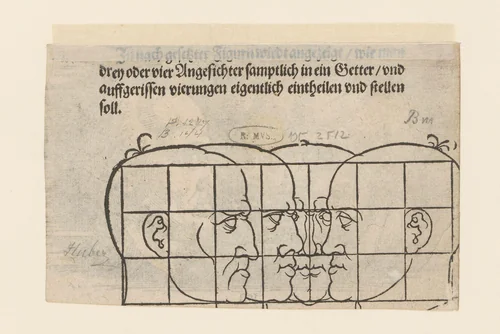 In nachgesetzter Figurn wirdt angezeigt / wie man
drey oder vier Angesichter samptlich in ein Getter / vnd
auffgerissen vierungen eigentlich eintheilen vnd stellen
soll.
2512
Bm
Hueber